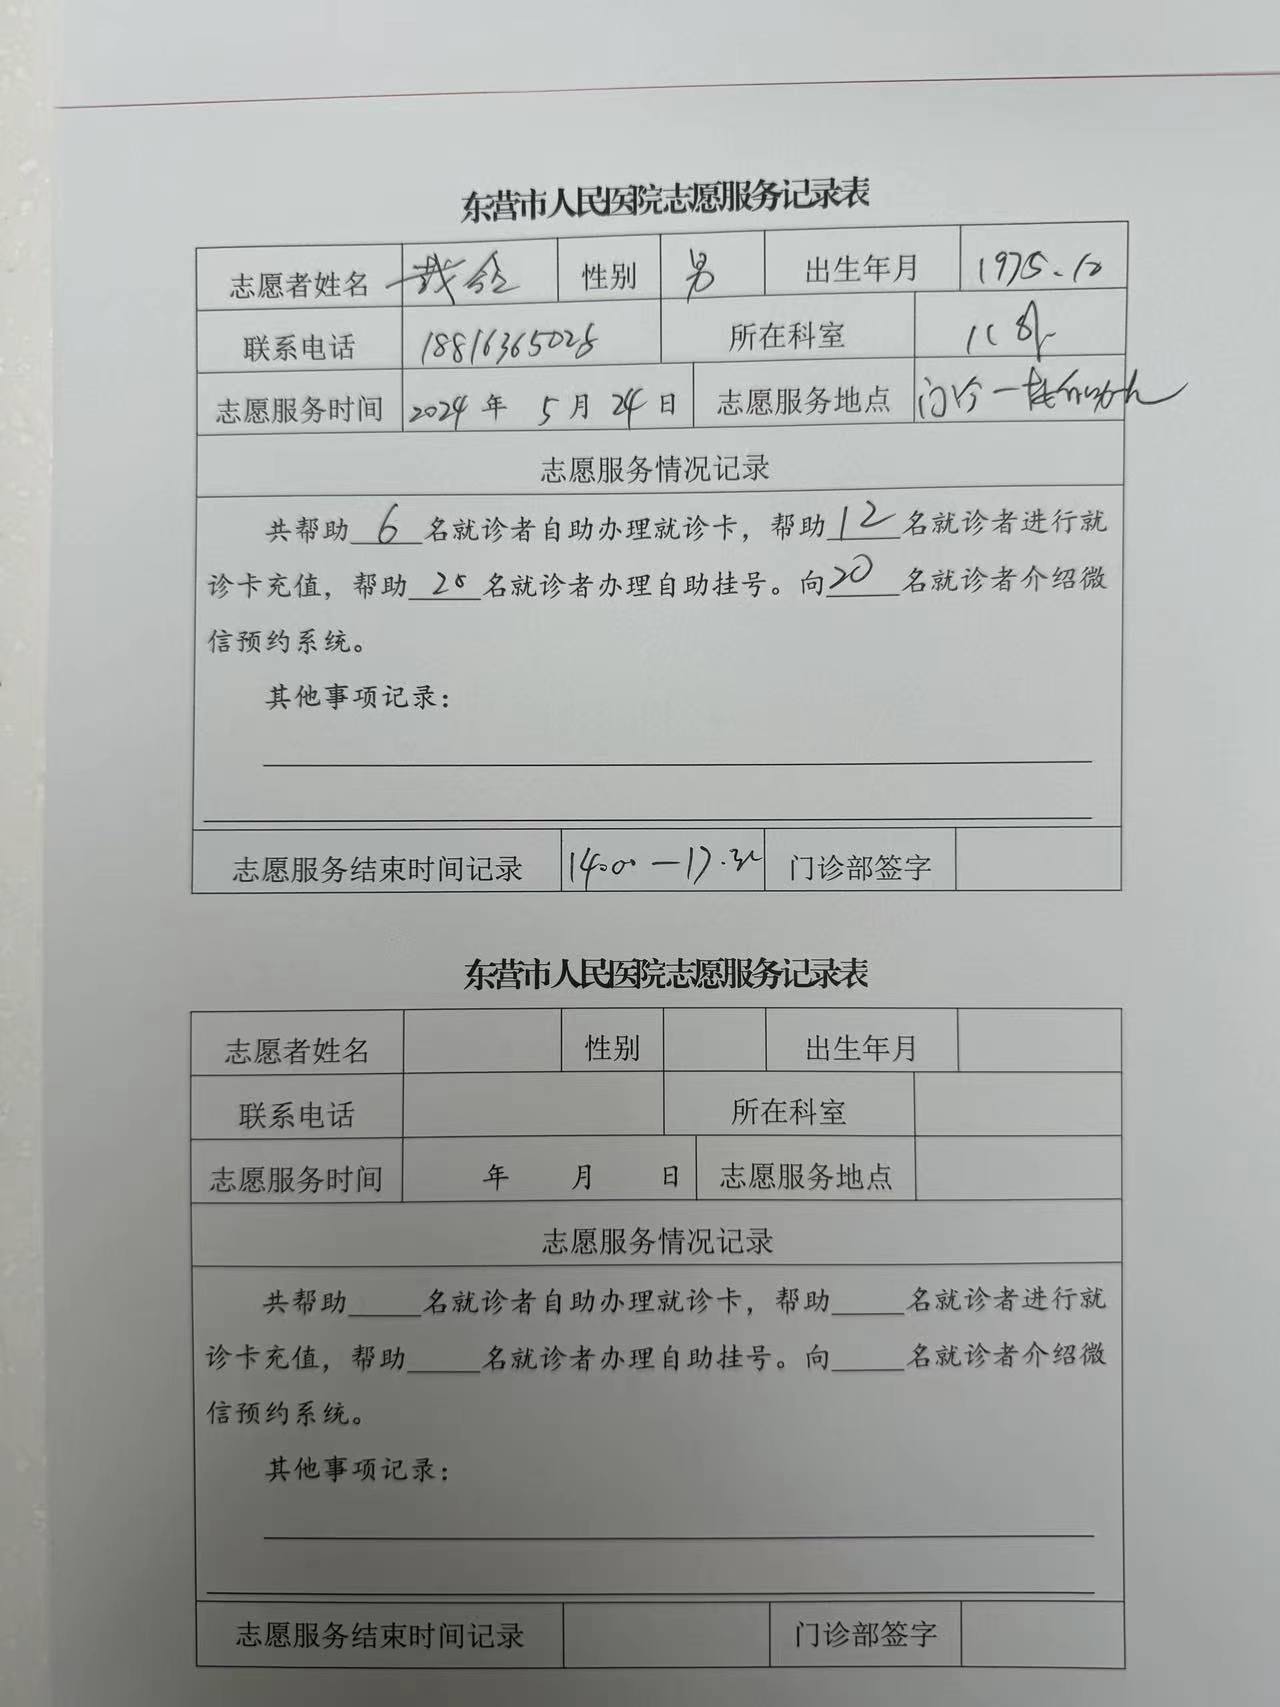 东营市人民医院志愿服务记录表
志愿者姓名 性别 男 出生年月 1975.12
联系电话 18816365028 所在科室
志愿服务时间 2024年 5月 24日 志愿服务地点 门诊一楼
志愿服务情况记录
共帮助 6 名就诊者自助办理就诊卡，帮助 12 名就诊者进行就
诊卡充值，帮助 20 名就诊者办理自助挂号。向 20 名就诊者介绍微
信预约系统。
其他事项记录：
志愿服务结束时间记录 14:00—17:30 门诊部签字
东营市人民医院志愿服务记录表
志愿者姓名 性别 出生年月
联系电话 所在科室
志愿服务时间 年 月 日 志愿服务地点
志愿服务情况记录
共帮助_____名就诊者自助办理就诊卡，帮助_____名就诊者进行就
诊卡充值，帮助_____名就诊者办理自助挂号。向_____名就诊者介绍微
信预约系统。
其他事项记录：
志愿服务结束时间记录 门诊部签字